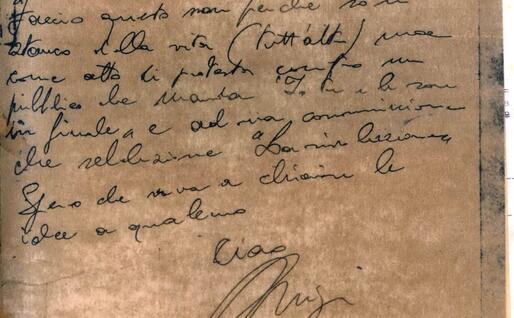 Faccio questo non perché sono
stanco della vita (tutt'altro) ma
come atto di protesta contro un
pubblico che manda "Io tu e le rose
in finale" e ad una commissione
che seleziona "La rivoluzione"
Spero che serva a chiarire le
idee a qualcuno
Ciao
Luigi